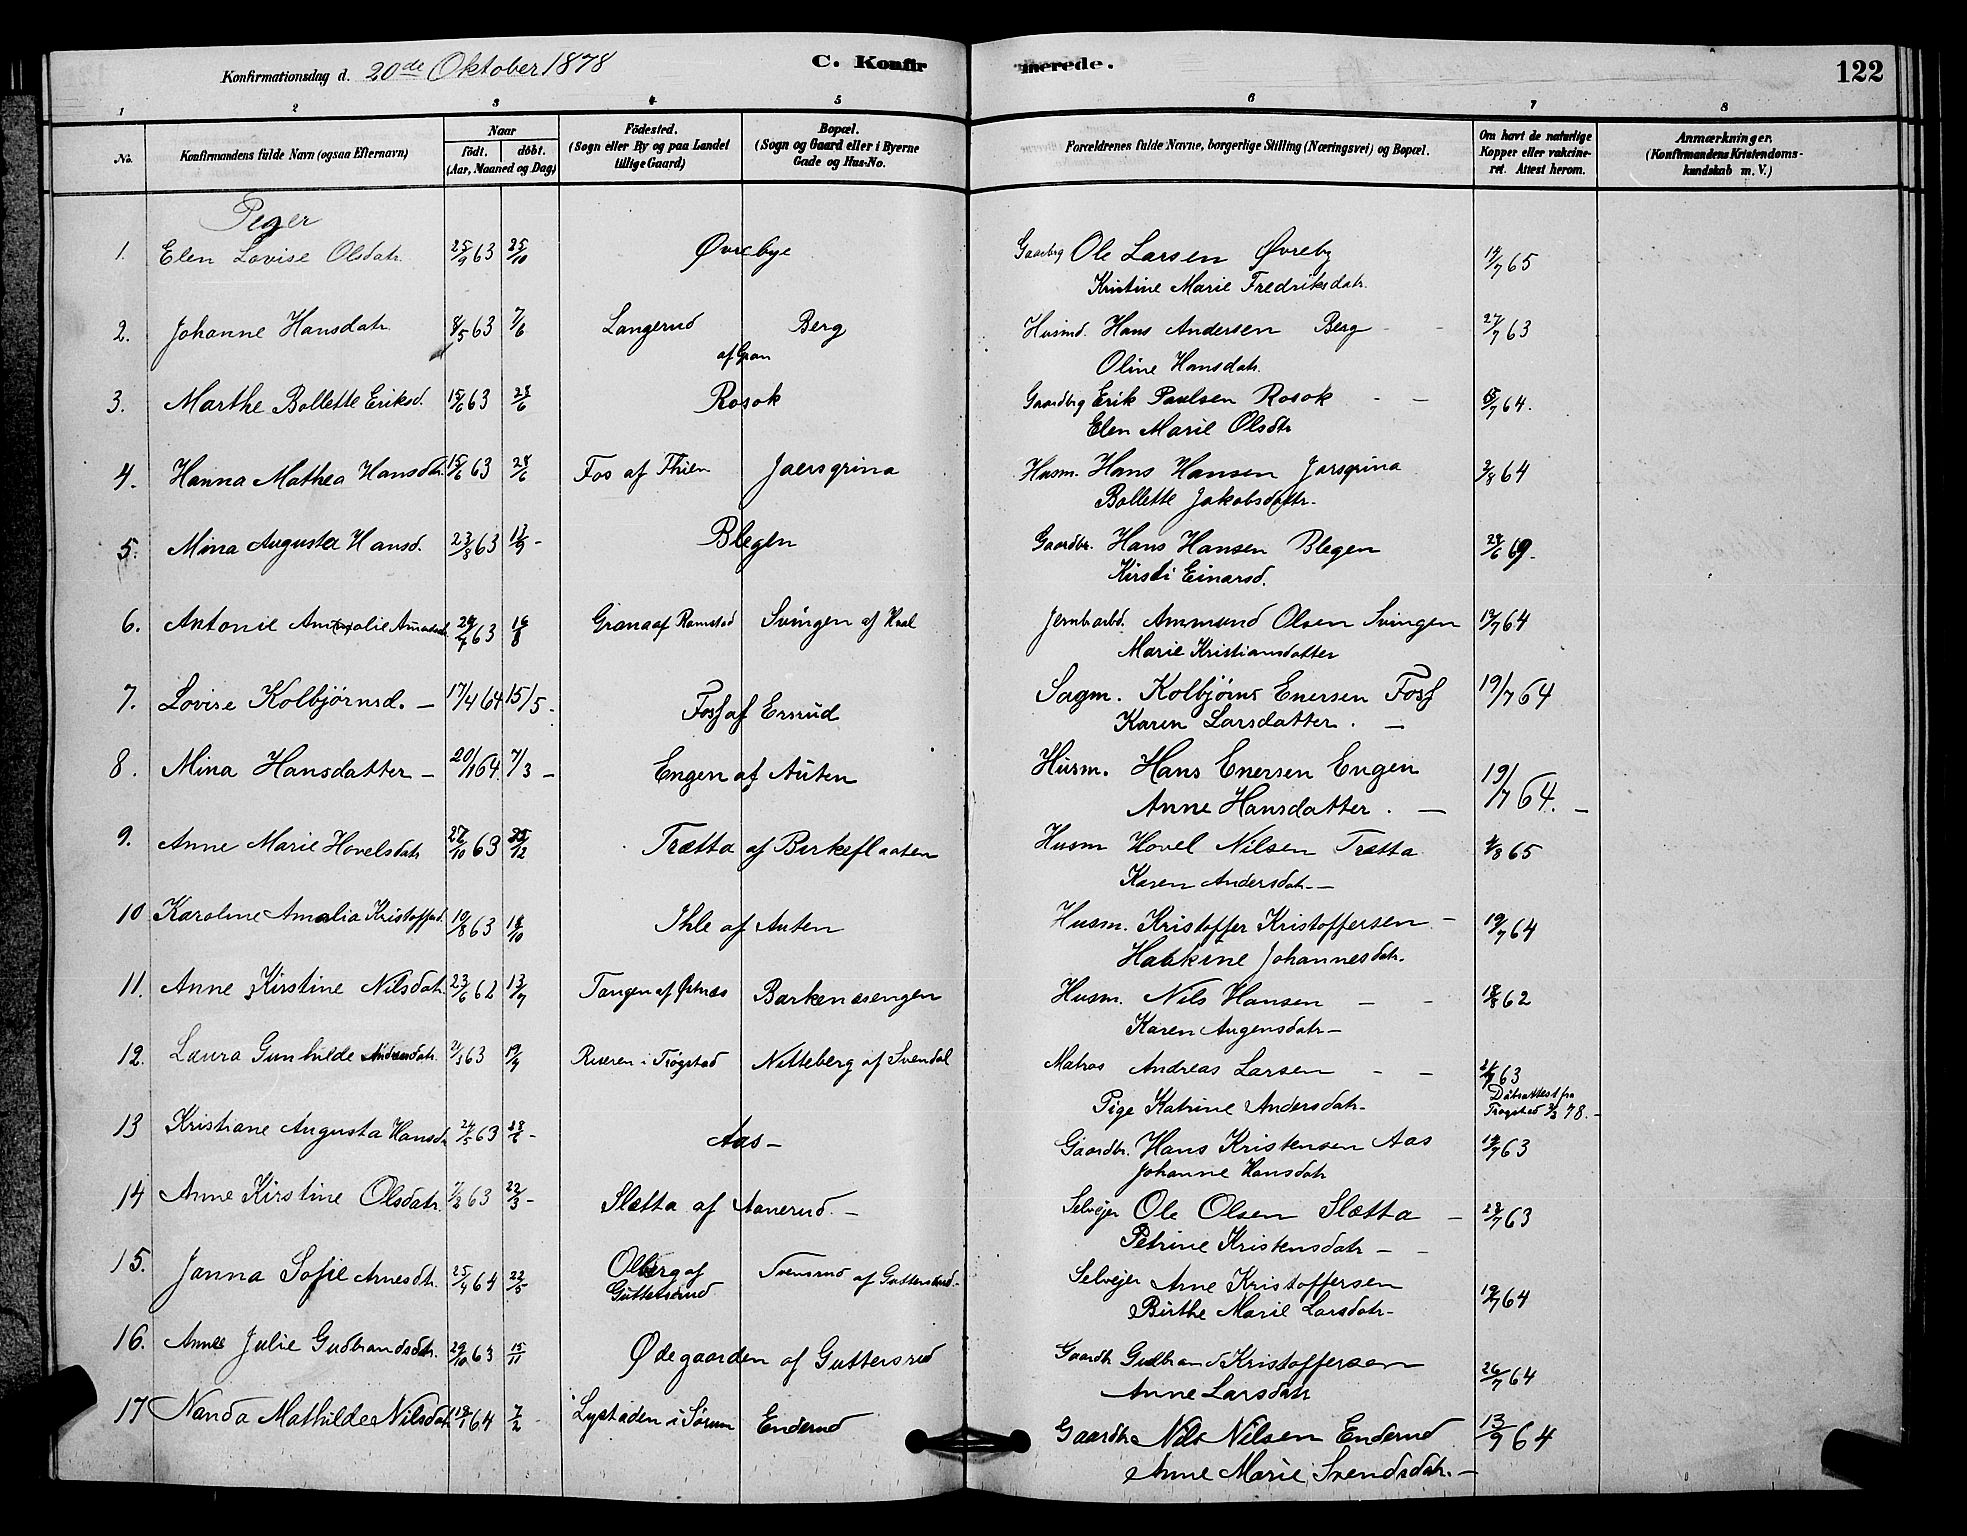 Konfirmationsdag d. 20de Oktober 1878 C. Konfirmerede. 122
1 2 3 4 5 6 7 8
No. Konfirmandens fulde Navn (ogsaa Efternavn) Naar födt. döbt. (Aar, Maaned og Dag) Födested. (Sogn eller By og paa Landet tillige Gaard) Bopæl. (Sogn og Gaard eller i Byerne Gade og Hus-No. Forældrenes fulde Navne, borgerlige Stilling (Næringsvei) og Bopæl. Om havt de naturlige Kopper eller vakcineret. Attest herom. Anmærkninger. (Konfirmandens Kristendomskundskab m. V.)
Piger
1. Elen Lovise Olsdatr. 25/9 63 25/10 Øvrebye Gaardbrg Ole Larsen Øvreby 19/7 65
Kristine Marie Fredriksdatr.
2. Johanne Hansdatr. 8/5 63 7/6 Langerud af Gran Berg Husmd. Hans Andersen Berg - - 27/7 63
Oline Hansdatr.
3. Marthe Bollette Eriksd. 15/6 63 28/6 Rosok Gaardbrg Erik Paulsen Rosok - - /7 64.
Elen Marie Olsdtr
4. Hanna Mathea Hansdtr. 15/6 63 28/6 Fos af Thien Jaersgrina Husm. Hans Hansen Jarsgrina 3/8 64
Bollette Jakobsdattr.
5. Mina Augusta Hansd. 23/8 63 13/9 - Blegen Gaardbr. Hans Hansen Blegen 29/6 69.
Kirsti Einarsd.
6. Antonie 29/7 63 16/8 Grana af Ramstad Svingen af Hval Jernbarbd. Ammund Olsen Svingen 19/7 64
Marie Kristiansdatter
7. Lovise Kolbjørnsd. - 17/4 64 15/5. Foss af Ersrud Sagm. Kolbjørns Enersen Foss 19/7 64
Karen Larsdatter. -
8. Mina Hansdatter - 20/1 64. 7/3 - Engen af Auten Husm. Hans Enersen Engen 19/7 64. -
Anne Hansdatter. -
9. Anne Marie Hovelsdatr 27/10 63 /12 Trætta af Birkeflaaten Husm Hovel Nilsen Trætta /8 65
Karen Andersdatr. -
10 Karoline Amalia Kristoffsd. 19/8 63 18/10 Ihle af Auten Husm. Kristoffer Kristoffersen - 19/7 64
Haakine Johannesdatr.
11. Anne Kirstine Nilsdatr. 23/6 62 13/7 Tangen af Østnæs Barkenæsengen Husm. Nils Hansen - - 18/8 62
Karen Augensdatr -
12. Laura Gunhilde Andreasdatr. 2/3 63 19/4 Riseren i Trøgstad Nitteberg af Svendal Matros Andreas Larsen - - /7 63
Pige Katrine Andersdatr. Dåbsattest fra Trøgstad 78. -
13 Kristiane Augusta Hansdtr 24/5 63 28/6 - Aas - Gaardbr. Hans Kristensen Aas 19/7 63
Johanne Hansdatr
14 Anne Kirstine Olsdatr. 7/2 63 22/3 - Slætta af Aanerud. - Selvejer Ole Olsen Slætta - 28/7 63
Petrine Kristensdatr - -
15. Janna Sofie Arnesdtr. 25/4 64 22/5 Olberg af Guttersrud Svensrud af Guttersrud - Selvejer Arne Kristoffersen 19/7 64
Birthe Marie Larsdatr -
16. Anne Julie Gudbrandsdatr. 29/10 63 15/11 Ødegaarden af Guttersrud Gaardbr Gudbrand Kristoffersen 26/7 64
Anne Larsdatr
17 Nanda Mathilde Nilsdatr. 18/1 64 7/2 Lystaden i Sørum Enderud Gaardbr Nils Nilsen Enderud 13/9 64
Anne Marie Svendsdatr. -